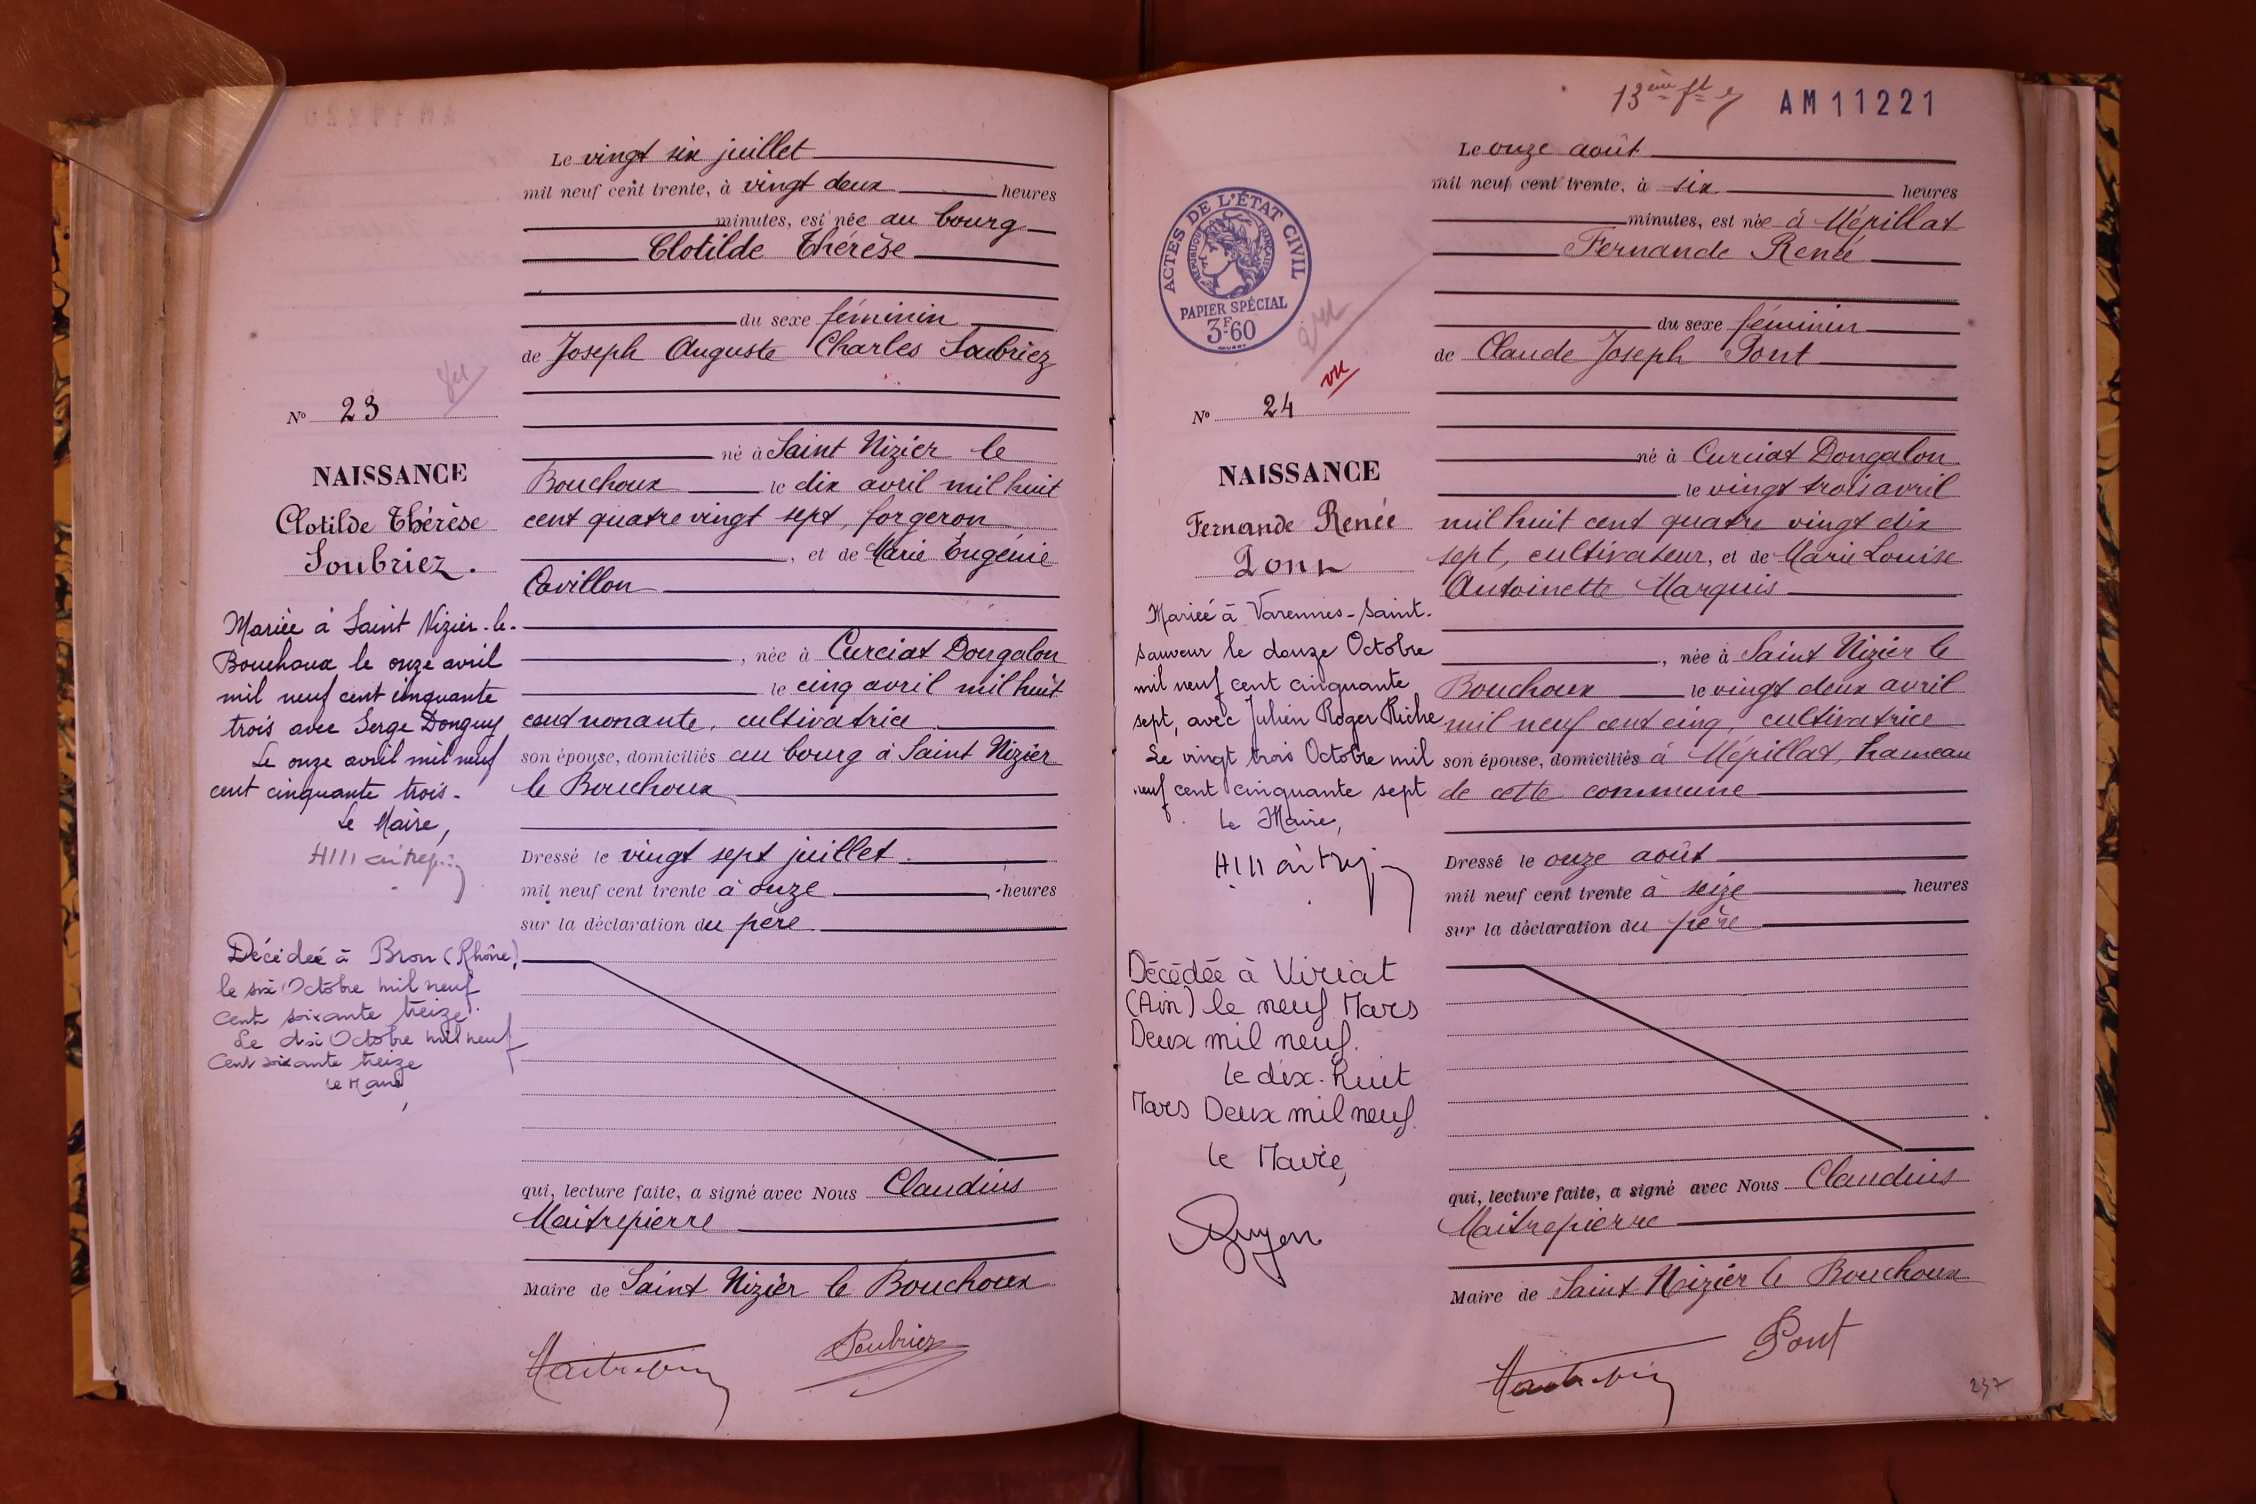 Le vingt six juillet
mil neuf cent trente, à vingt deux heures
minutes, est née au bourg
Clotilde Thérèse
du sexe féminin
de Joseph Auguste Charles Soubriez
Vu
N° 23
né à Saint Nizier le
Bouchoux le dix avril mil huit
cent quatre vingt sept, forgeron
, et de Marie Eugénie
Cavillon
, née à Curciat Dongalon
le cinq avril mil huit
cent nonante, cultivatrice
son épouse, domiciliés au bourg à Saint Nizier
le Bouchoux
Dressé le vingt sept juillet.
mil neuf cent trente à onze heures
sur la déclaration du père
qui, lecture faite, a signé avec Nous Claudius
Maitrepierre
Maire de Saint Nizier le Bouchoux
Soubriez
NAISSANCE
Clotilde Thérèse
Soubriez.
Mariée à Saint Nizier-le-
Bouchoux le onze avril
mil neuf cent cinquante
trois avec Serge Donguy
Le onze avril mil neuf
cent cinquante trois.
Le Maire,
Décédée à Bron (Rhône),
le six Octobre mil neuf
cent soixante treize.
Le dix Octobre mil neuf
cent soixante treize
Le Maire
,
13ème ft
AM11221
ACTES DE L'ÉTAT CIVIL
RÉPUBLIQUE FRANÇAISE
PAPIER SPÉCIAL
3F.60
vu
N° 24
NAISSANCE
Fernande Renée
Pont
Mariée à Varennes-Saint-
Sauveur le douze Octobre
mil neuf cent cinquante
sept, avec Julien Roger Riche
Le vingt trois Octobre mil
neuf cent cinquante sept
Le Maire,
Décédée à Viriat
(Ain) le neuf Mars
Deux mil neuf.
Le dix-huit
Mars Deux mil neuf.
Le Maire,
Le onze août
mil neuf cent trente, à six heures
minutes, est née à Mépillat
Fernande Renée
du sexe féminin
de Claude Joseph Pont
né à Curciat Dongalon
le vingt trois avril
mil huit cent quatre vingt dix
sept, cultivateur, et de Marie Louise
Antoinette Marquis
, née à Saint Nizier le
Bouchoux le vingt deux avril
mil neuf cent cinq, cultivatrice
son épouse, domiciliés à Mépillat, hameau
de cette commune
Dressé le onze août
mil neuf cent trente à seize heures
sur la déclaration du père
qui, lecture faite, a signé avec Nous Claudius
Maitrepierre
Maire de Saint Nizier le Bouchoux
Pont
237